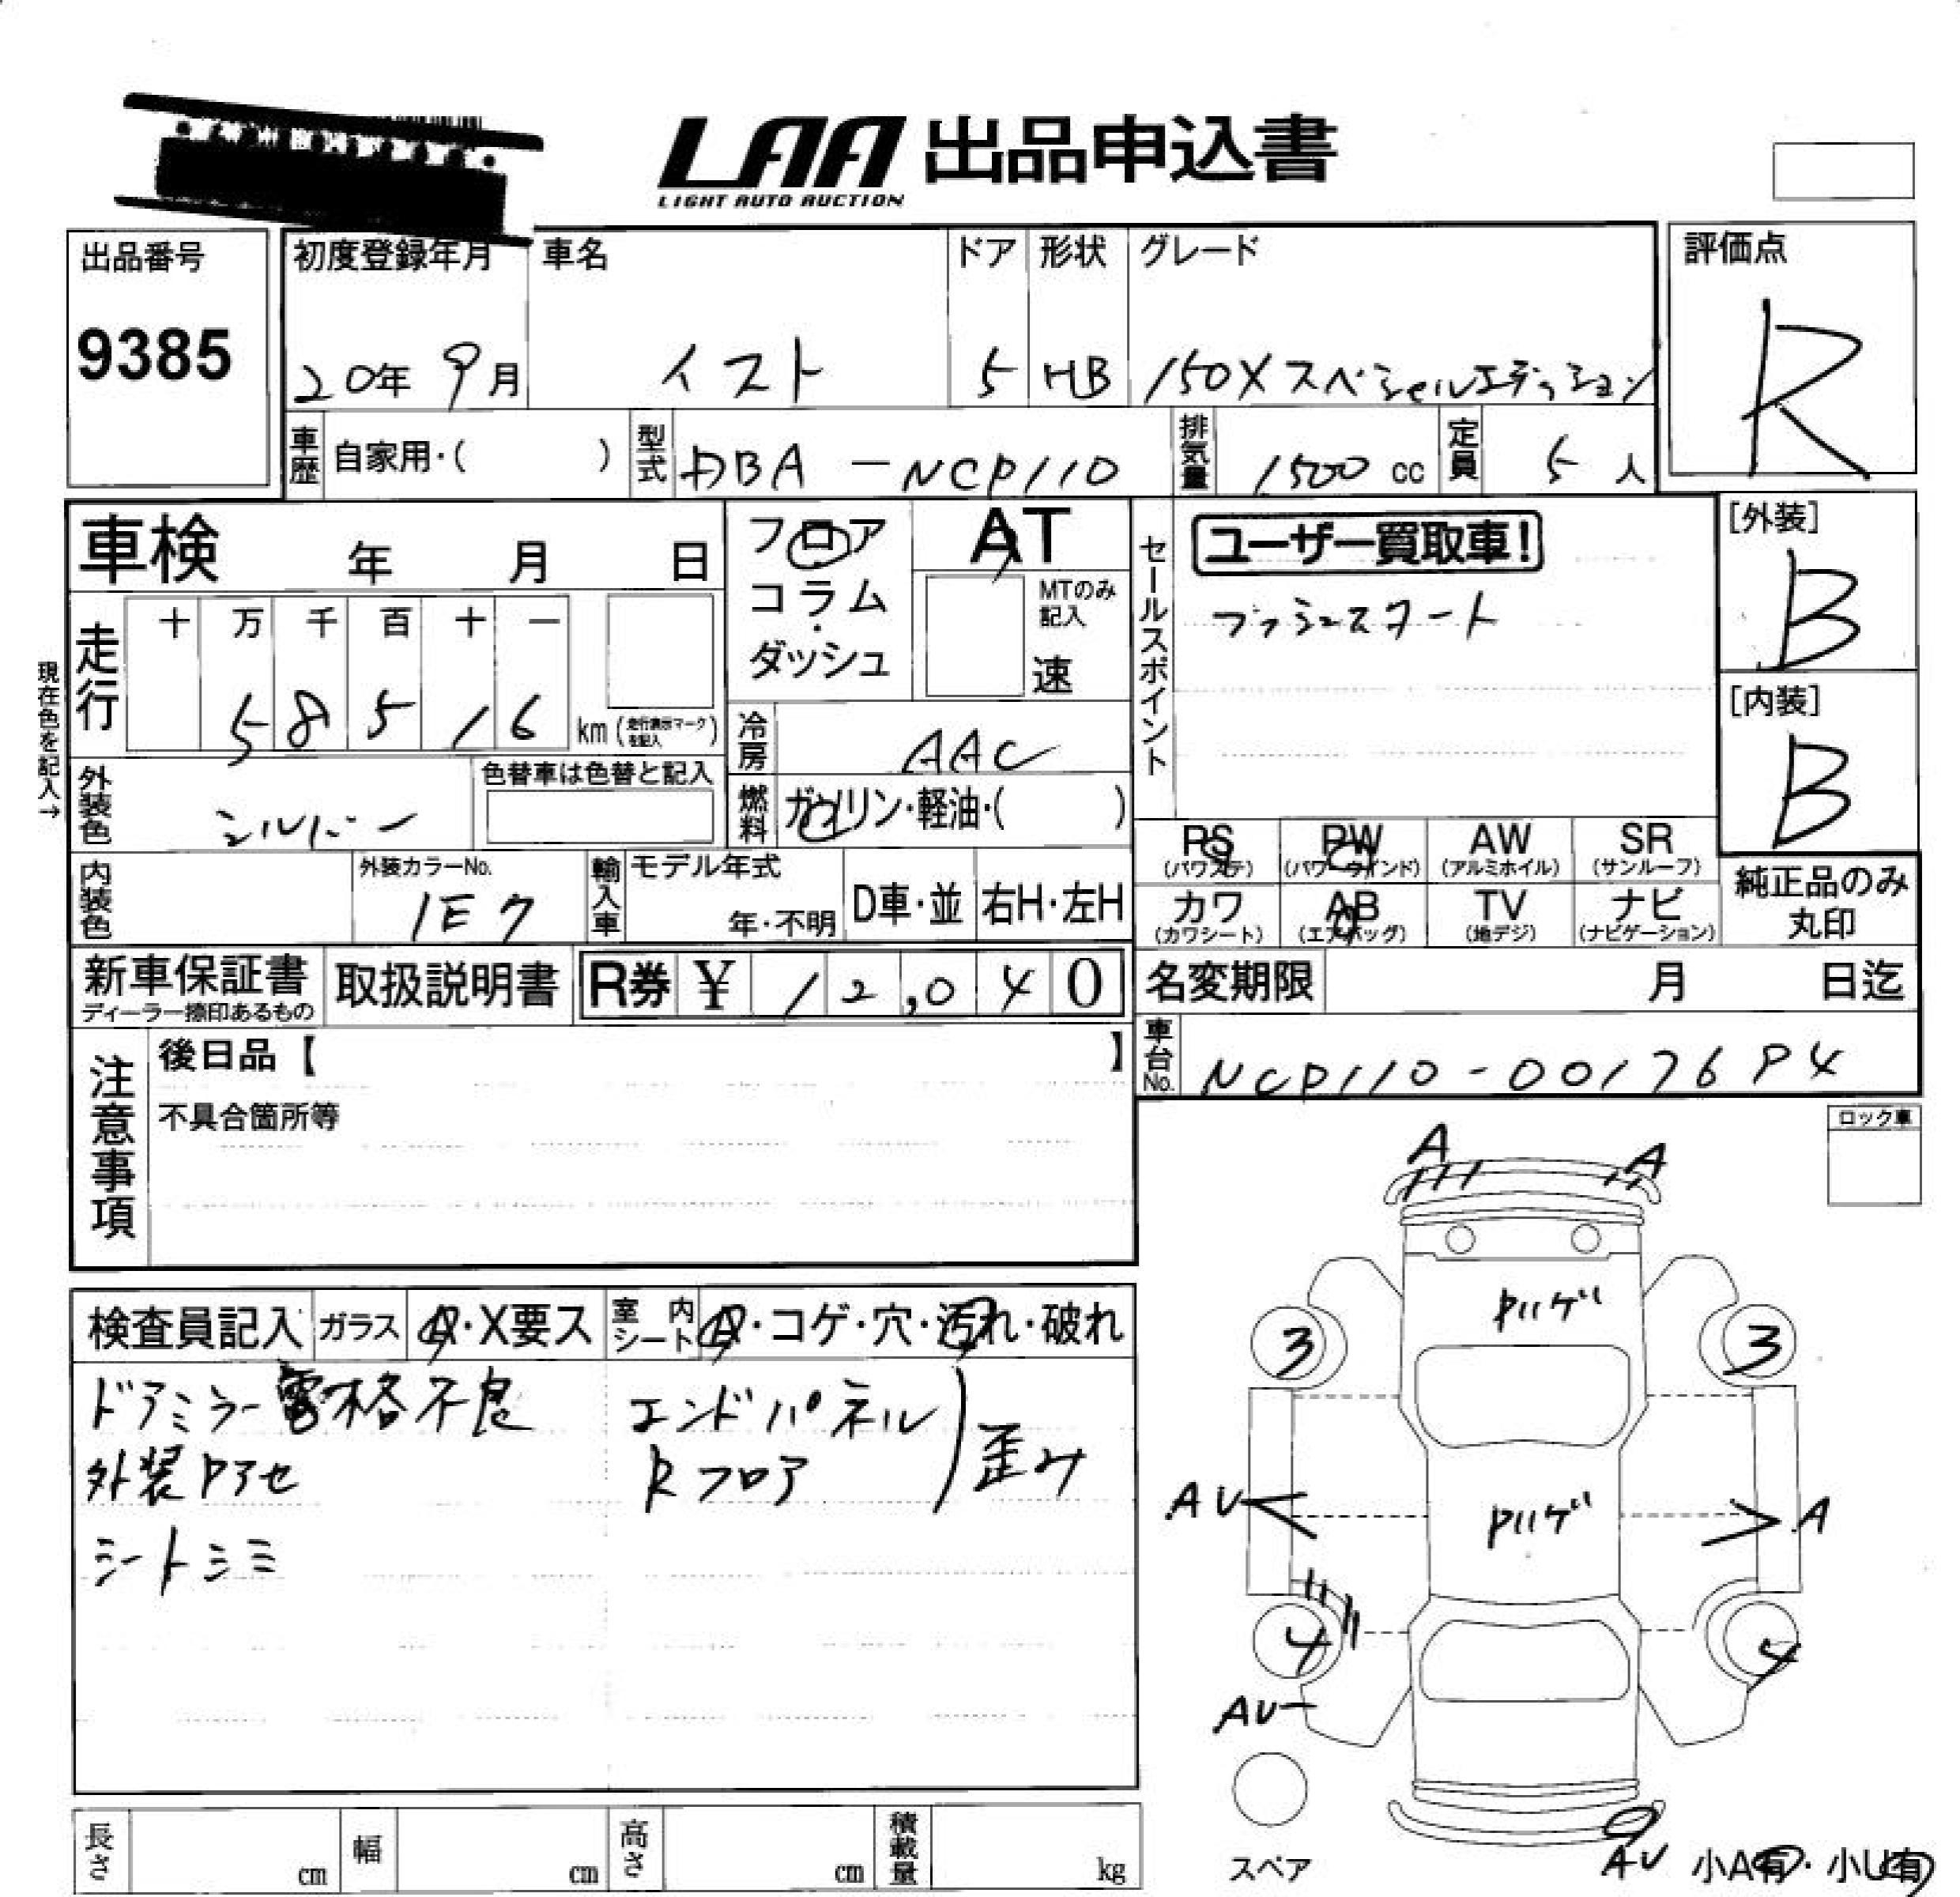 LAA 出品申込書
LIGHT AUTO AUCTION
出品番号
9385
初度登録年月
20年 9月
車名
イスト
ドア
5
形状
HB
グレード
150X スペシャルエディション
評価点
R
車歴
自家用・( )
型式
DBA - NCP110
排気量
1500 cc
定員
5 人
車検 年 月 日
フロア
コラム
・
ダッシュ
AT
MTのみ
記入
速
セールスポイント
ユーザー買取車!
プッシュスタート
[外装]
B
[内装]
B
現在色を記入→
走行
十 万 千 百 十 一
5 8 5 1 6
km (走行表示マークを記入)
冷房
AAC
外装色
シルバー
色替車は色替と記入
燃料
ガソリン・軽油・( )
PS
(パワステ)
PW
(パワーウインド)
AW
(アルミホイル)
SR
(サンルーフ)
カワ
(カワシート)
AB
(エアバッグ)
TV
(地デジ)
ナビ
(ナビゲーション)
純正品のみ
丸印
内装色
外装カラーNo.
1E7
輸入車
モデル年式
年・不明
D車・並
右H・左H
新車保証書
ディーラー捺印あるもの
取扱説明書
R券 ¥ 12,040
名変期限 月 日迄
車台No.
NCP110-0017694
注意事項
後日品【 】
不具合箇所等
ロック車
検査員記入
ガラス
A・X要ス
室内シート
A・コゲ・穴・汚れ・破れ
ドアミラー電格不良
外装Pアセ
シートシミ
エンドパネル
Rフロア
歪み
A
A
Pハゲ
3
3
AU
Pハゲ
A
4
4
AU
スペア
AU
小A有・小U有
長さ cm
幅 cm
高さ cm
積載量 kg